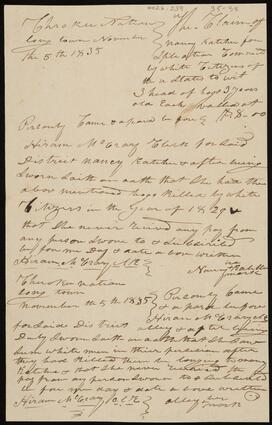 0026.239 35-39
Cheroke Nation
long town November
the 5th 1835
The Claim of
nancy Ratchee for
Spoliation Committed
by white Citizens of
the u States to wit
3 head of hogs 3 years
old Each valued at
$18.00
Personly Came & apeard be fore
Hiram McCray Clerk for Said
District nancy Ratchee & after being
Sworn Saith on oath that She had three
above mentioned hogs Killed by white
Citizens in the Year of 1829
that She never Received any pay from
any person Sworn to & Subscribed
be for me day & date a bove written
Hiram McCray Clk
Nancy Ratchee
mark
Cherokee nation
long town
november the 5th 1835
Personly Came
& apeard be fore
Hiram McCray
for Saide District alley & after being
Duly Sworn Saith on oath that She Saw
white men in thir persesion after
they had Killed them be longing to nancy
Ratchee & that She never Received any
pay from any person Sworn to & Subscribed
be fore me day & date a bove written
Hiram McCray Clk
alley her
mark